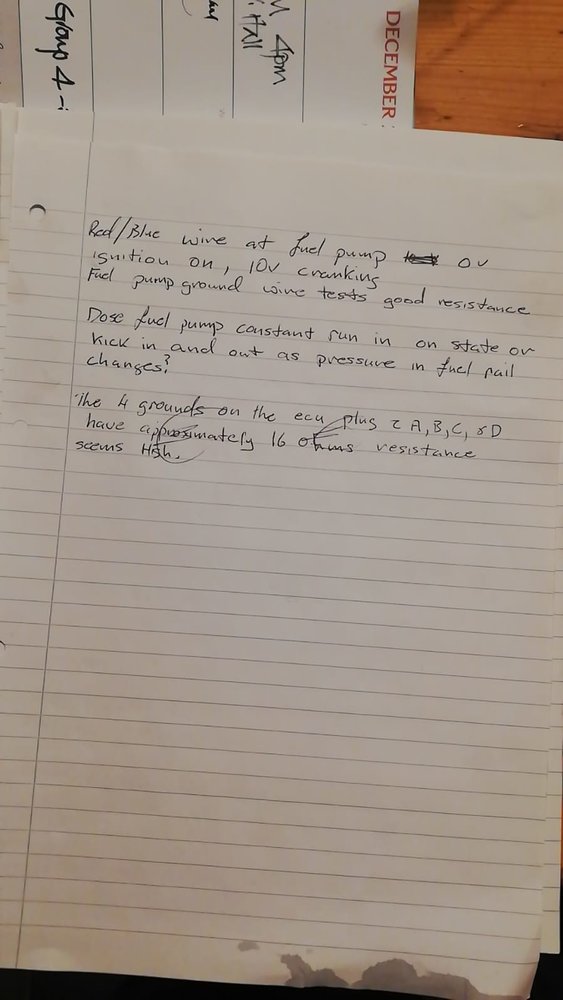 Group 4 -
4pm
Hall
DECEMBER
Red/Blue wire at fuel pump 0v
ignition on, 10v cranking
Fuel pump ground wire tests good resistance
Dose fuel pump constant run in on state or
kick in and out as pressure in fuel rail
changes?
The 4 grounds on the ecu plug A, B, C, D
have approximately 16 ohms resistance
seems High.